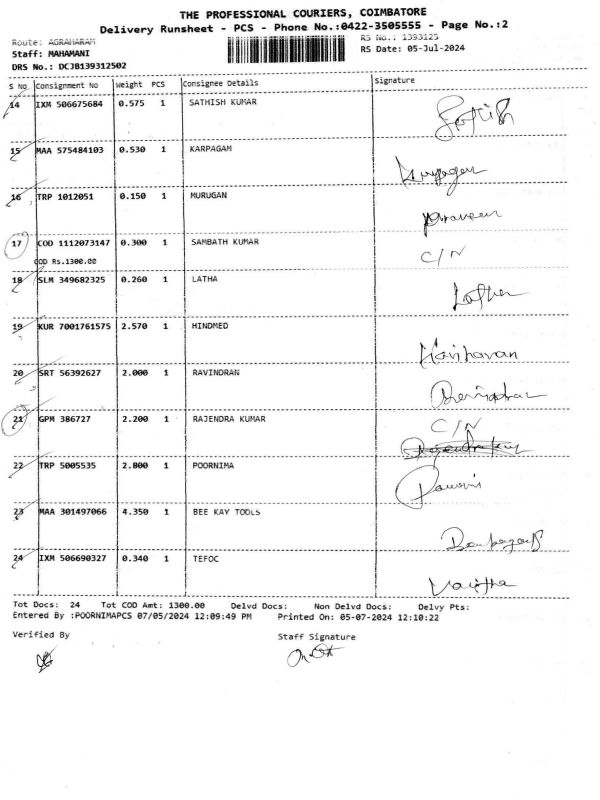 THE PROFESSIONAL COURIERS, COIMBATORE
Delivery Runsheet - PCS - Phone No.:0422-3505555 - Page No.:2
Route: AGRAHARAM RS No.: 1393125
Staff: MAHAMANI RS Date: 05-Jul-2024
DRS No.: DCJB139312502
S No Consignment No Weight PCS Consignee Details Signature
14 IXM 506675684 0.575 1 SATHISH KUMAR
15 MAA 575484103 0.530 1 KARPAGAM
16 TRP 1012051 0.150 1 MURUGAN Praveen
17 COD 1112073147 0.300 1 SAMBATH KUMAR C/N
COD Rs.1300.00
18 SLM 349682325 0.260 1 LATHA Latha
19 KUR 7001761575 2.570 1 HINDMED Hariharan
20 SRT 56392627 2.000 1 RAVINDRAN
21 GPM 386727 2.200 1 RAJENDRA KUMAR C/N
22 TRP 5005535 2.800 1 POORNIMA
23 MAA 301497066 4.350 1 BEE KAY TOOLS
24 IXM 506690327 0.340 1 TEFOC
Tot Docs: 24 Tot COD Amt: 1300.00 Delvd Docs: Non Delvd Docs: Delvy Pts:
Entered By :POORNIMAPCS 07/05/2024 12:09:49 PM Printed On: 05-07-2024 12:10:22
Verified By Staff Signature